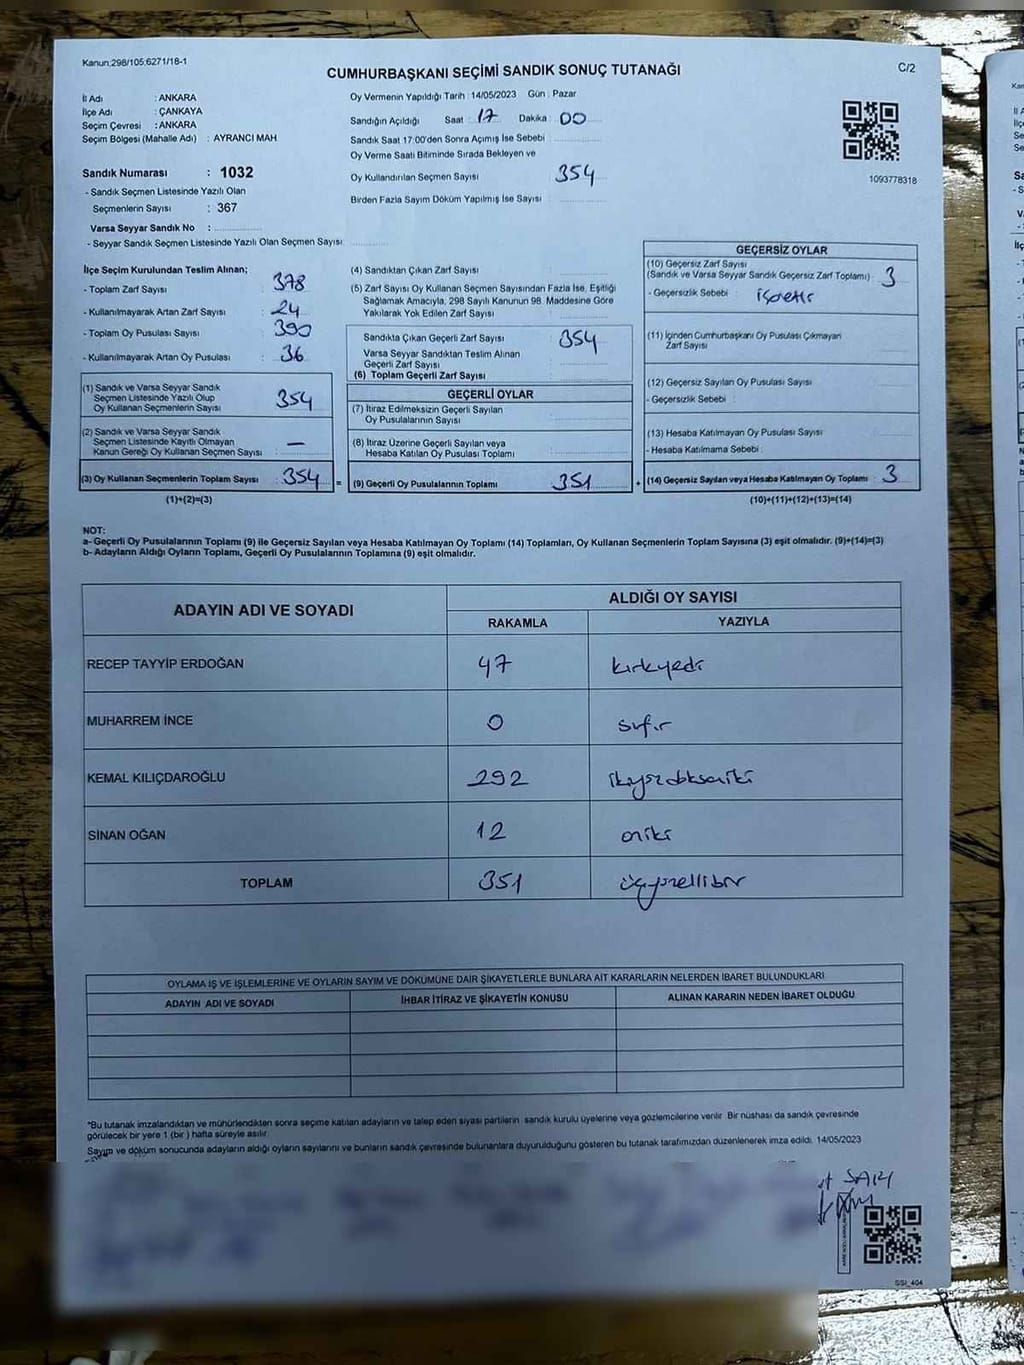 Kanun:298/105;6271/18-1
C/2
CUMHURBAŞKANI SEÇİMİ SANDIK SONUÇ TUTANAĞI
İl Adı : ANKARA
İlçe Adı : ÇANKAYA
Seçim Çevresi : ANKARA
Seçim Bölgesi (Mahalle Adı) : AYRANCI MAH
Sandık Numarası : 1032
- Sandık Seçmen Listesinde Yazılı Olan
Seçmenlerin Sayısı : 367
Varsa Seyyar Sandık No :
- Seyyar Sandık Seçmen Listesinde Yazılı Olan Seçmen Sayısı:
Oy Vermenin Yapıldığı Tarih : 14/05/2023 Gün : Pazar
Sandığın Açıldığı Saat : 17 Dakika : 00
Sandık Saat 17:00'den Sonra Açımış İse Sebebi :
Oy Verme Saati Bitiminde Sırada Bekleyen ve
Oy Kullandırılan Seçmen Sayısı : 354
Birden Fazla Sayım Döküm Yapılmış İse Sayısı :
1093778318
İlçe Seçim Kurulundan Teslim Alınan;
- Toplam Zarf Sayısı : 378
- Kullanılmayarak Artan Zarf Sayısı : 24
- Toplam Oy Pusulası Sayısı : 390
- Kullanılmayarak Artan Oy Pusulası : 36
(1) Sandık ve Varsa Seyyar Sandık
Seçmen Listesinde Yazılı Olup
Oy Kullanan Seçmenlerin Sayısı : 354
(2) Sandık ve Varsa Seyyar Sandık
Seçmen Listesinde Kayıtlı Olmayan
Kanun Gereği Oy Kullanan Seçmen Sayısı : —
(3) Oy Kullanan Seçmenlerin Toplam Sayısı : 354 =
(1)+(2)=(3)
(4) Sandıktan Çıkan Zarf Sayısı :
(5) Zarf Sayısı Oy Kullanan Seçmen Sayısından Fazla İse, Eşitliği
Sağlamak Amacıyla, 298 Sayılı Kanunun 98. Maddesine Göre
Yakılarak Yok Edilen Zarf Sayısı :
Sandıkta Çıkan Geçerli Zarf Sayısı : 354
Varsa Seyyar Sandıktan Teslim Alınan
Geçerli Zarf Sayısı :
(6) Toplam Geçerli Zarf Sayısı :
GEÇERLİ OYLAR
(7) İtiraz Edilmeksizin Geçerli Sayılan
Oy Pusulalarının Sayısı :
(8) İtiraz Üzerine Geçerli Sayılan veya
Hesaba Katılan Oy Pusulası Toplamı :
(9) Geçerli Oy Pusulalarının Toplamı : 351 +
GEÇERSİZ OYLAR
(10) Geçersiz Zarf Sayısı
(Sandık ve Varsa Seyyar Sandık Geçersiz Zarf Toplamı) : 3
- Geçersizlik Sebebi : işaretli
(11) İçinden Cumhurbaşkanı Oy Pusulası Çıkmayan
Zarf Sayısı :
(12) Geçersiz Sayılan Oy Pusulası Sayısı :
- Geçersizlik Sebebi :
(13) Hesaba Katılmayan Oy Pusulası Sayısı :
- Hesaba Katılmama Sebebi :
(14) Geçersiz Sayılan veya Hesaba Katılmayan Oy Toplamı : 3
(10)+(11)+(12)+(13)=(14)
NOT:
a- Geçerli Oy Pusulalarının Toplamı (9) ile Geçersiz Sayılan veya Hesaba Katılmayan Oy Toplamı (14) Toplamları, Oy Kullanan Seçmenlerin Toplam Sayısına (3) eşit olmalıdır. (9)+(14)=(3)
b- Adayların Aldığı Oyların Toplamı, Geçerli Oy Pusulalarının Toplamına (9) eşit olmalıdır.
ADAYIN ADI VE SOYADI
ALDIĞI OY SAYISI
RAKAMLA YAZIYLA
RECEP TAYYİP ERDOĞAN 47 kırkyedi
MUHARREM İNCE 0 sıfır
KEMAL KILIÇDAROĞLU 292 ikiyüzdoksaniki
SİNAN OĞAN 12 oniki
TOPLAM 351 üçyüzellibir
OYLAMA İŞ VE İŞLEMLERİNE VE OYLARIN SAYIM VE DÖKÜMÜNE DAİR ŞİKAYETLERLE BUNLARA AİT KARARLARIN NELERDEN İBARET BULUNDUKLARI
ADAYIN ADI VE SOYADI İHBAR İTİRAZ VE ŞİKAYETİN KONUSU ALINAN KARARIN NEDEN İBARET OLDUĞU
*Bu tutanak imzalandıktan ve mühürlendikten sonra seçime katılan adayların ve talep eden siyasi partilerin sandık kurulu üyelerine veya gözlemcilerine verilir. Bir nüshası da sandık çevresinde
görülecek bir yere 1 (bir) hafta süreyle asılır.
Sayım ve döküm sonucunda adayların aldığı oyların sayılarını ve bunların sandık çevresinde bulunanlara duyurulduğunu gösteren bu tutanak tarafımızdan düzenlenerek imza edildi. 14/05/2023
SARI
SSI_404